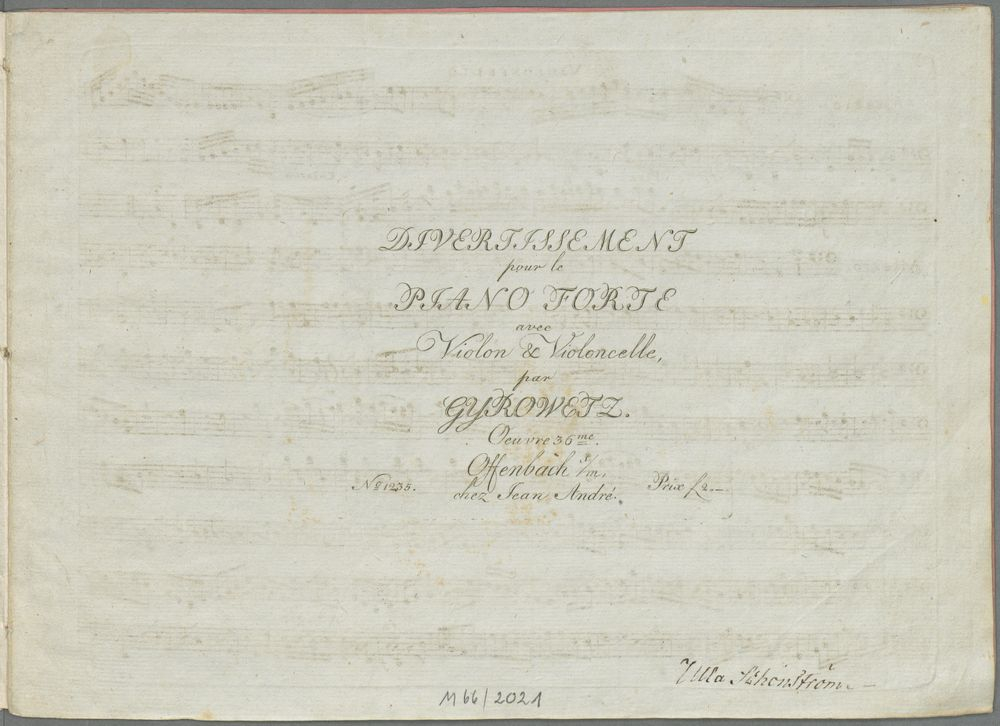 DIVERTISSEMENT
pour le
PIANO FORTE
avec
Violon & Violoncelle,
par
GYROWETZ.
Oeuvre 36me.
Offenbach s/m,
No 1235. chez Jean André. Prix f 2.—
Ulla
M 66/2021